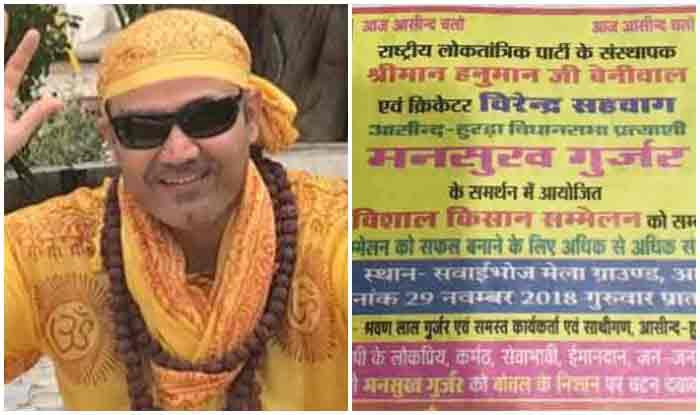 आज आसीन्द चलो आज आसीन्द चलो
राष्ट्रीय लोकतांत्रिक पार्टी के संस्थापक
श्रीमान हनुमान जी बेनीवाल
एवं क्रिकेटर विरेन्द्र सहवाग
आसीन्द-हुरड़ा विधानसभा प्रत्याशी
मनसुख गुर्जर
के समर्थन में आयोजित
विशाल किसान सम्मेलन को सम
मेलन को सफल बनाने के लिए अधिक से अधिक सं
स्थान- सवाईभोज मेला ग्राउण्ड, आ
नांक 29 नवम्बर 2018 गुरुवार प्रात
- श्रवण लाल गुर्जर एवं समस्त कार्यकर्ता एवं साथीगण, आसीन्द-हु
पी के लोकप्रिय, कर्मठ, सेवाभावी, ईमानदान, जन-जन
मनसुख गुर्जर को बोतल के निशान पर बटन दबा
ॐ